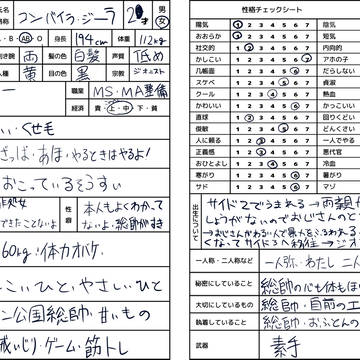 氏名 コンバイラ・ジーラ 2 歳 男 女
A・B・O AB 身長 194cm 体重 112kg
利き腕 両 髪の色 白髪 声質 低め
人種 黄 目の色 黒 ジオニスト
職業 MS・MA整備
経済 貴・上・中・下・貧
い くせ毛
さっぱ・あほ・やるときはやるよ!
おこっているそうすい
性癖 本人もよくわかってない。総帥がすき
できたことないよ
60kg・体力オバケ
こいひと、やさしいひと
ン公国総帥・甘いもの
械いじり・ゲーム・筋トレ
性格チェックシート
陽気 1 2 3 4 5 6 7 陰気
おおらか 1 2 3 4 5 6 7 短気
社交的 1 2 3 4 5 6 7 内向的
かしこい 1 2 3 4 5 6 7 アホの子
几帳面 1 2 3 4 5 6 7 だらしない
スケベ 1 2 3 4 5 6 7 硬派
クール 1 2 3 4 5 6 7 熱血
かわいい 1 2 3 4 5 6 7 かっこいい
直球 1 2 3 4 5 6 7 回りくどい
俊敏 1 2 3 4 5 6 7 どんくさい
人に頼る 1 2 3 4 5 6 7 一人でやる
正義感 1 2 3 4 5 6 7 悪代官
おひとよし 1 2 3 4 5 6 7 冷血
寒がり 1 2 3 4 5 6 7 暑がり
サド 1 2 3 4 5 6 7 マゾ
出生について サイド2でうまれる→両親が
しょうがないのでおじさんのと
→おじさんかわる人で
なってサイド3へ移住→ジオ
一人称、二人称など 一人称・わたし 二人
秘密にしていること 総帥の心も体もほ
大切にしているもの 総帥・自前の工
執着していること 総帥・おふとんの
武器 素手